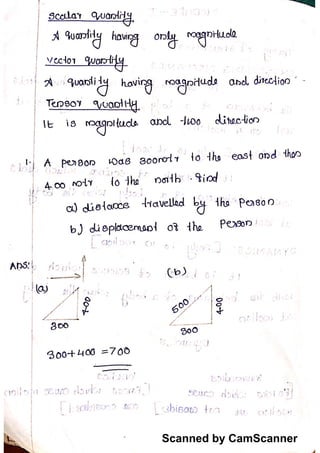 Scalar Quantity
A Quantity having only magnitude
Vector Quantity
A Quantity having magnitude and direction.
Tensor Quantity
It is magnitude and two direction
1. A person was 300mtr to the east and then
400 mtr to the north. Find
a) distance travelled by the person
b) displacement of the person
Ans:
(a) (b)
400 500 400
300 300
300+400 =700
Scanned by CamScanner